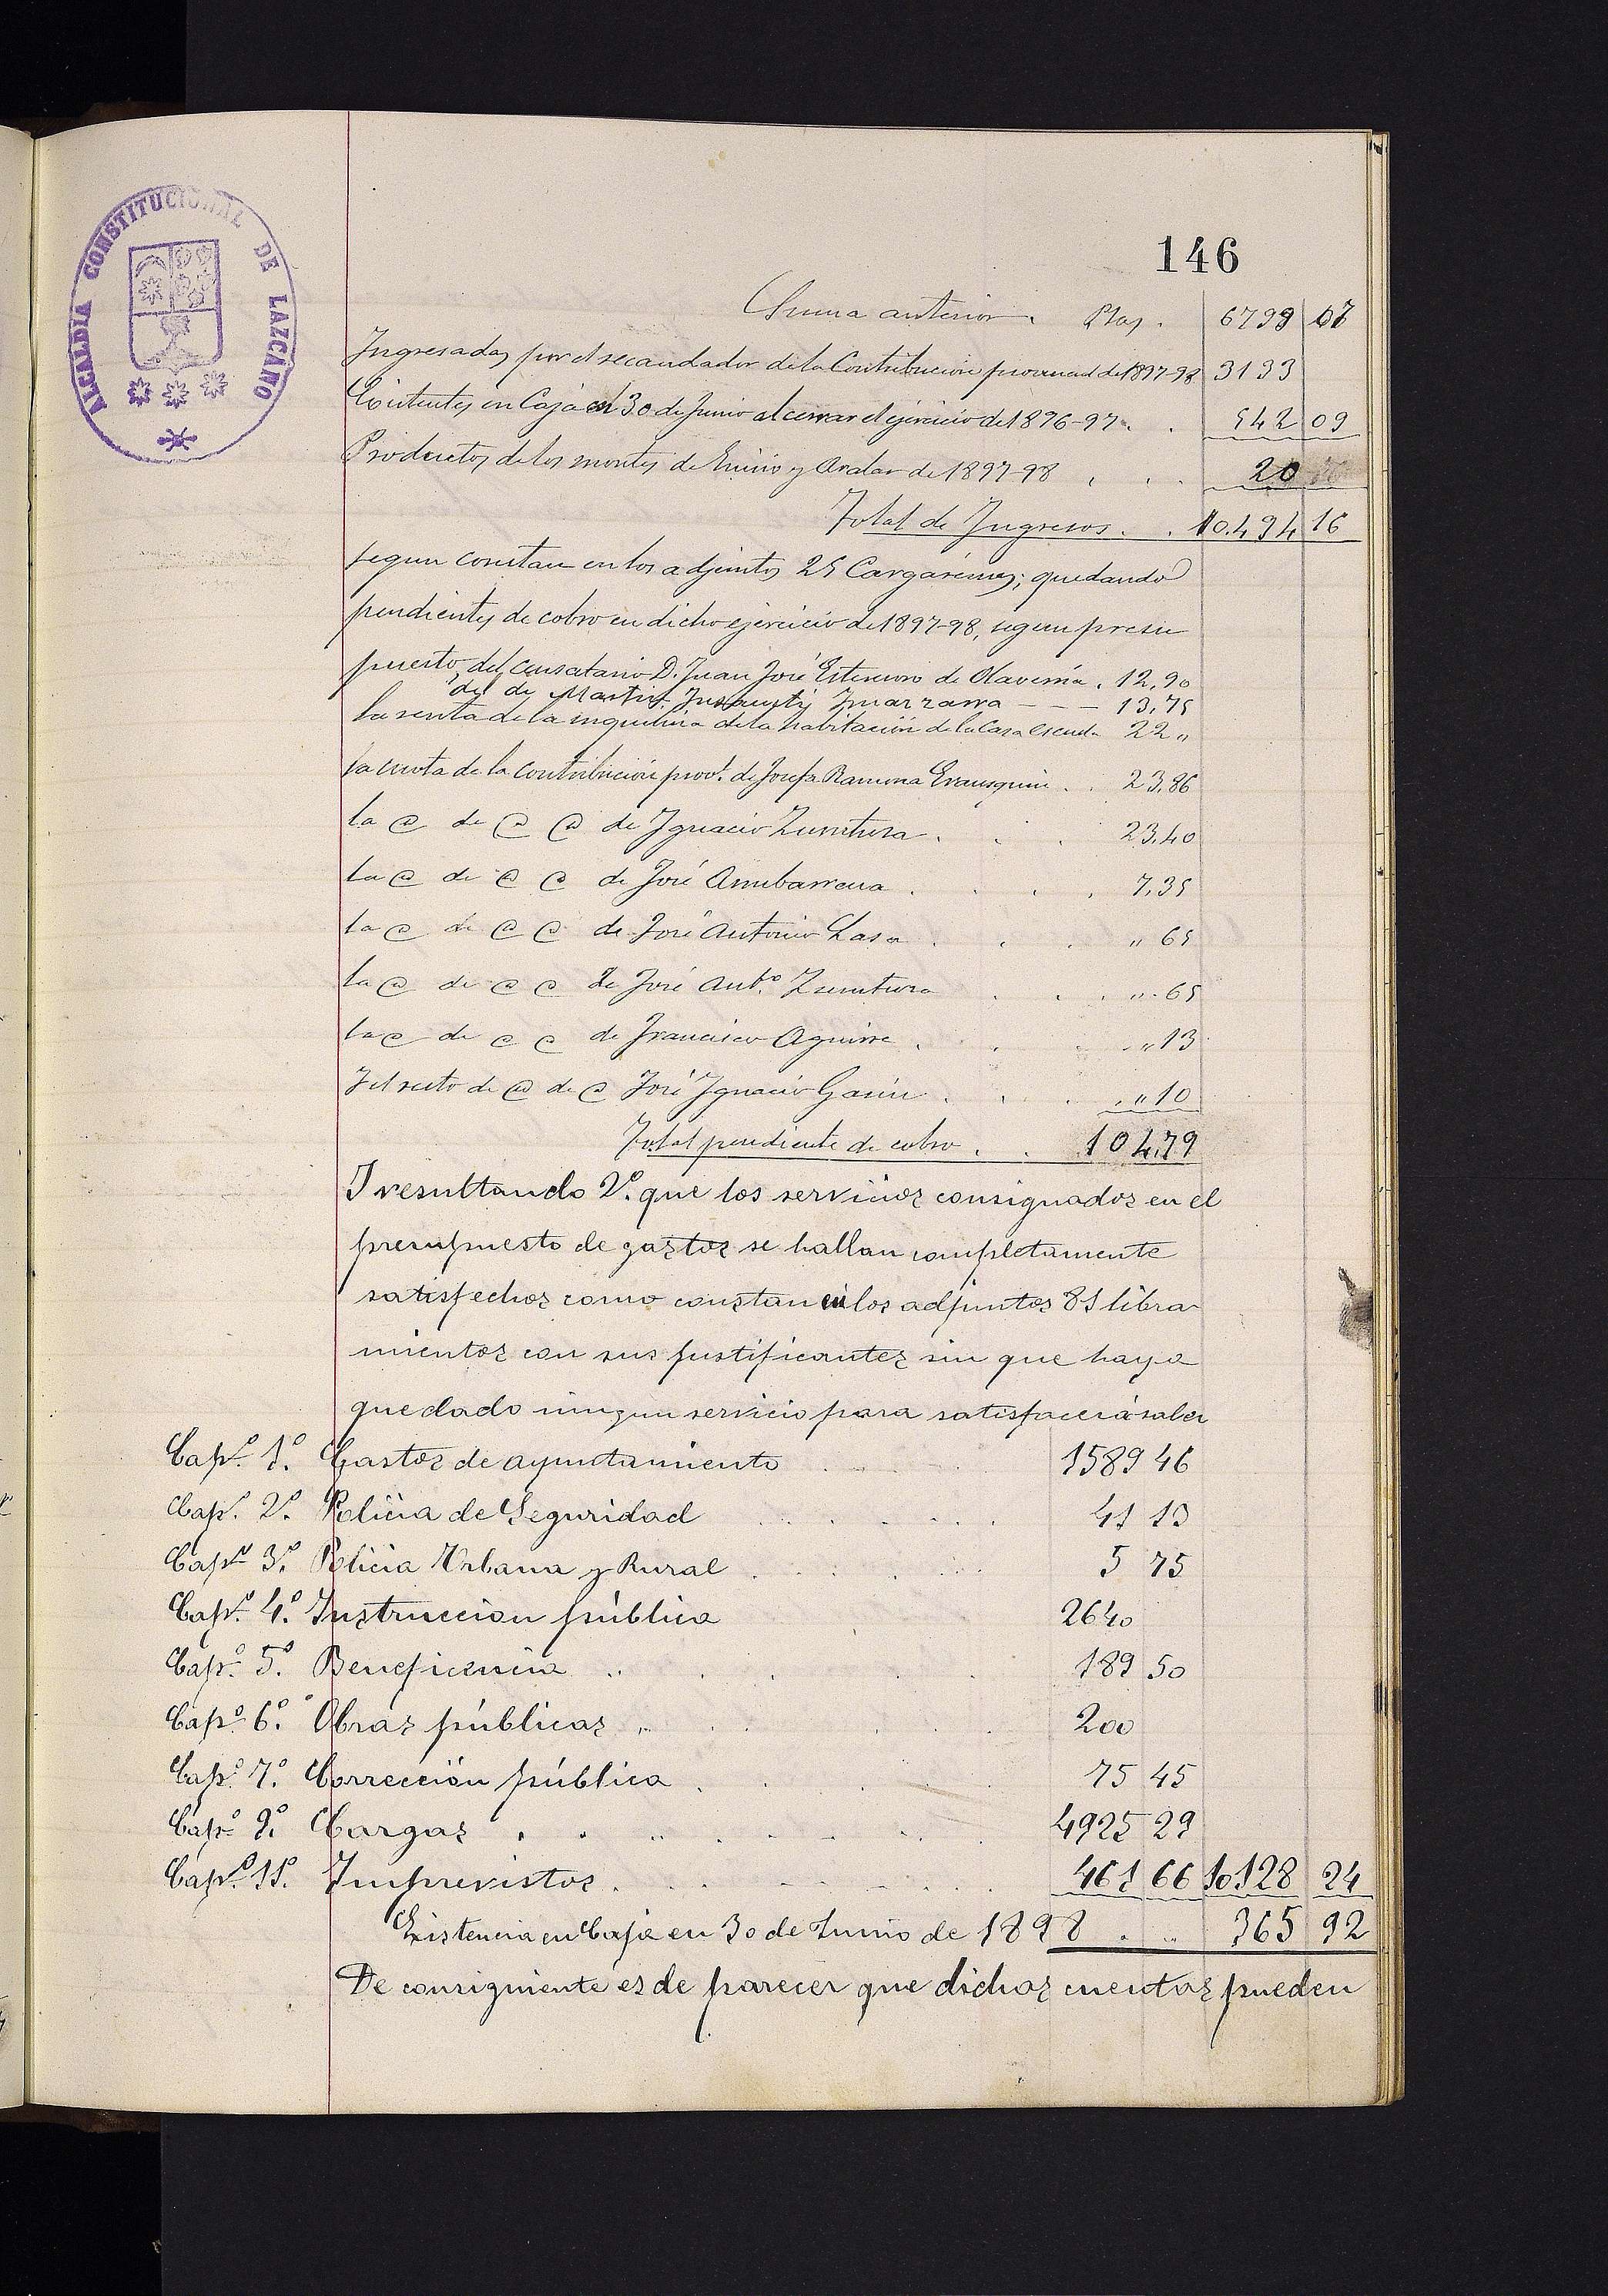 ALCALDIA CONSTITUCIONAL DE LAZCANO
146
Suma anterior. Ptas. 6799 07
Ingresadas por el recaudador de la Contribucion provincial de 1897-98 3133
Existentes en Caja en 30 de Junio al cerrar el ejercicio de 1896-97. . 542 09
Productos de los montes de Enirio y Aralar de 1897-98 . . . 20
Total de Ingresos . . 10.494 16
segun constan en los adjuntos 25 Cargarémes; quedando
pendientes de cobro en dicho ejercicio de 1897-98, segun presu
puesto, del censatario D. Juan José Estensoro de Olaverría . 12,90
del de Martin Insausti Imarzarra - - - 13,75
la renta de la inquilina de la habitación de la Casa escuela 22 "
la cuota de la contribución provl. de Josefa Ramona Erausquin . . 23,86
la @ de @ @ de Ignacio Zurutuza . . . 23,40
la @ de @ @ de José Arrubarrena . . . . 7,35
la @ de @ @ de José Antonio Lasa . . . " 65
la @ de @ @ de José Antº Zurutuza . . . " 65
la @ de @ @ de Francisco Aguirre . . . " 13
Y el resto de @ de @ José Ignacio Garin . . . . " 10
Total pendiente de cobro . . 104,79
Y resultando 2º. que los servicios consignados en el
presupuesto de gastos se hallan completamente
satisfechos como constan en los adjuntos 81 libra
mientos con sus justificantes sin que haya
quedado ningun servicio para satisfacer á saber
Capº. 1º. Gastos de ayuntamiento . . . 1589 46
Capº. 2º. Policia de Seguridad . . . . . 41 13
Capº. 3º. Policia Urbana y Rural . . . . . 5 75
Capº. 4º. Instruccion pública 2640
Capº. 5º. Beneficencia . . . . . 189 50
Capº. 6º. Obras públicas . . . . 200
Capº. 7º. Corrección pública . . . . 75 45
Capº. 9º. Cargas . . . . . . . 4925 29
Capº. 11º. Imprevistos . . . . . . . 461 66 10128 24
Existencia en Caja en 30 de Junio de 1898 . . 365 92
De consiguiente es de parecer que dichas cuentas pueden